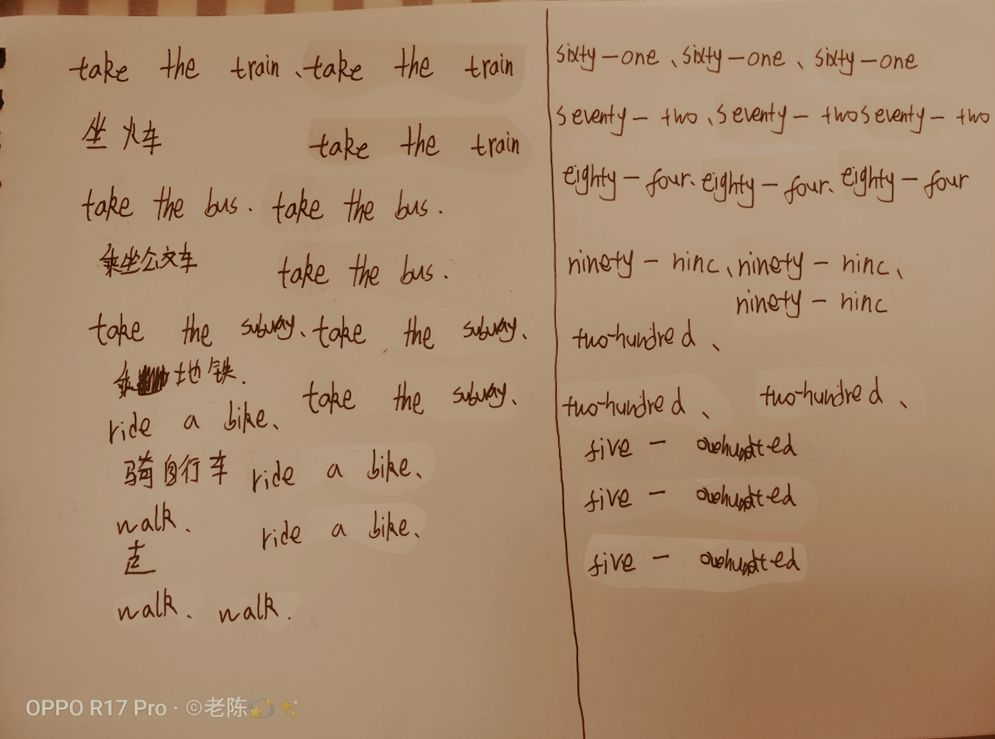 take the train、take the train
坐火车 take the train
take the bus. take the bus.
乘坐公交车 take the bus.
take the subway、take the subway、
乘地铁. take the subway、
ride a bike、
骑自行车 ride a bike、
walk、 ride a bike、
走
walk、walk.
sixty-one、sixty-one、sixty-one
seventy-two、seventy-twoseventy-two
eighty-four、eighty-four、eighty-four
ninety-ninc、ninety-ninc、
ninety-ninc
two-hundred、
two-hundred、 two-hundred、
five -
five -
five -
OPPO R17 Pro · ©老陈💫✨